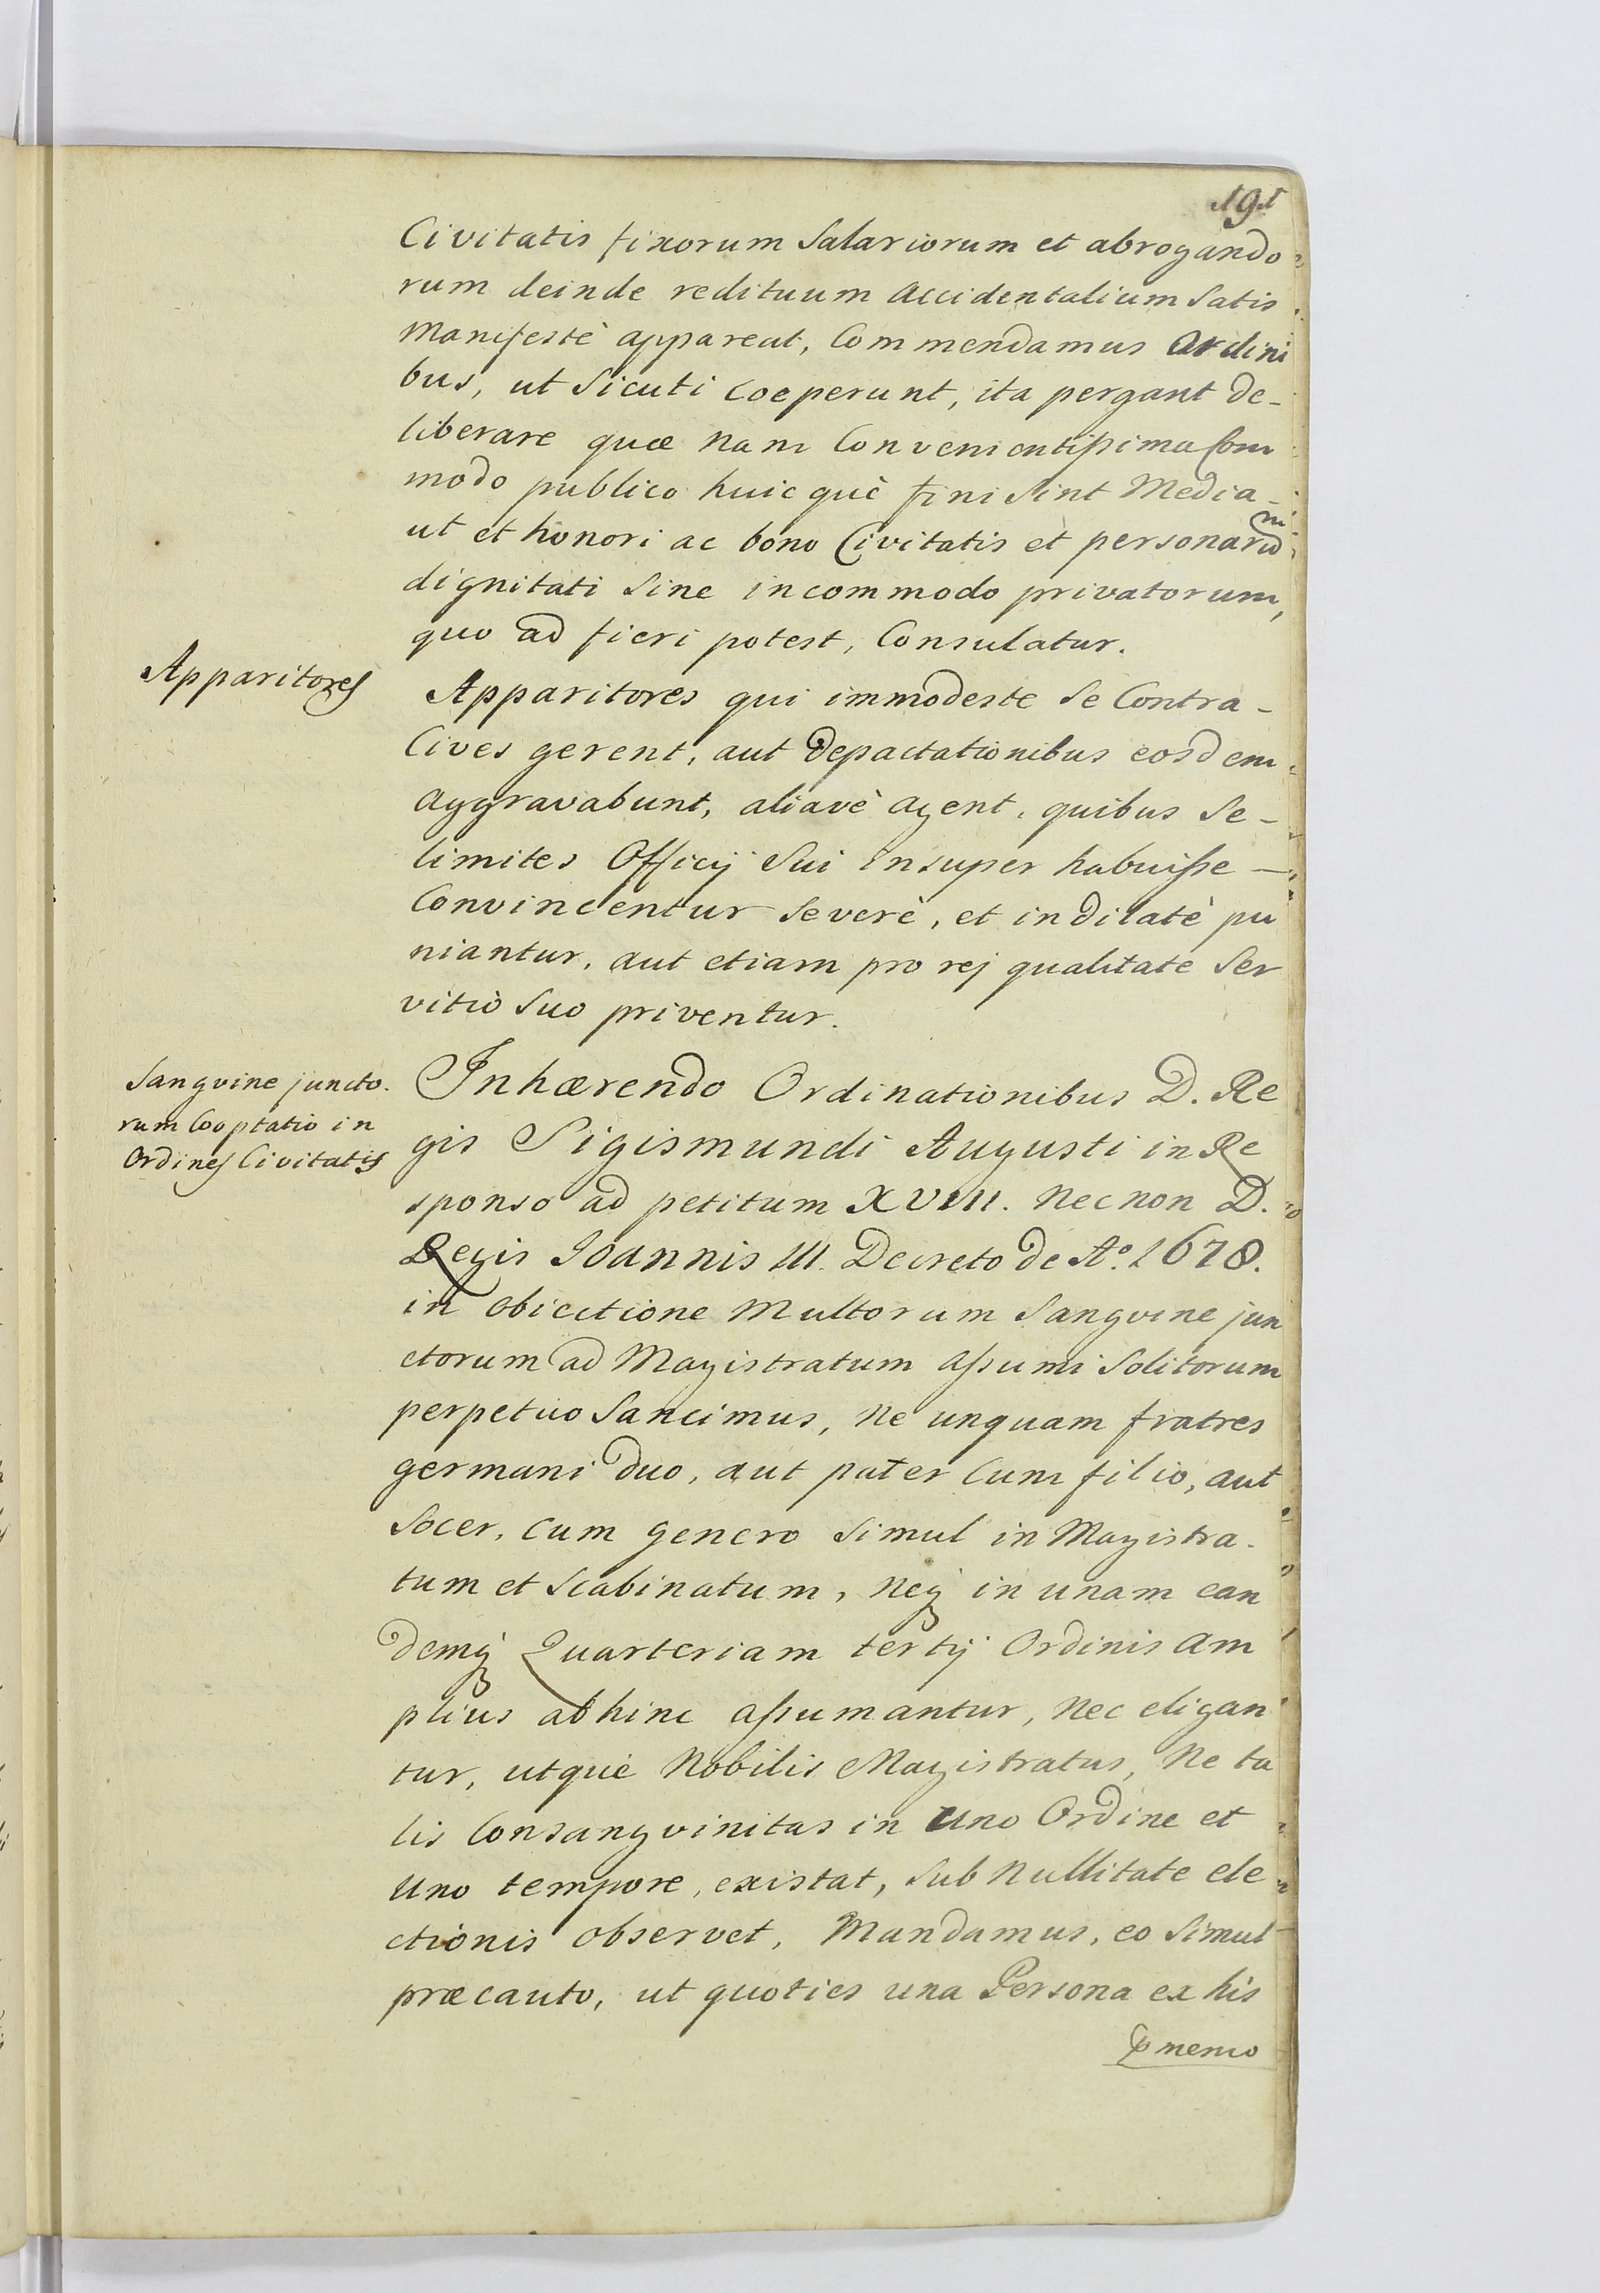 191
Civitatis fixorum Salariorum et abrogando
rum deinde redituum accidentalium Satis
Manifestè appareat, Commendamus Ordini
bus, ut Sicuti Coeperunt, ita pergant de-
liberare quæ nam Convenientißima Com
modo publico huic què fini sint Media
ut et honori ac bono Civitatis et personarum
dignitati Sine incommodo privatorum,
quo ad fieri potest, Consulatur.
Apparitores
Apparitores qui immodeste Se Contra-
Cives gerent, aut depactationibus eosdem
aggravabunt, aliavè agent, quibus Se-
limites Officij Sui insuper habuiße -
Convincentur Severè, et indilatè pu
niantur, aut etiam pro rej qualitate Ser
vitiò Suo priventur.
Sangvine juncto.
rum Cooptatio in
Ordines Civitatis
Inhærendo Ordinationibus D. Re
gis Sigismundi Augusti in Re
sponso ad petitum XVIII. Nec non D.
Regis Ioannis III. Decreto de Aº. 1678.
in obiectione Multorum Sangvine jun
ctorum ad Magistratum aßumi Solitorum
perpetuo Sancimus, Ne unquam fratres
germani duo, aut pater Cum filio, aut
Socer, Cum genero Simul in Magistra-
tum et Scabinatum, Neq; in unam ean
demq; Quarteriam tertij Ordinis am
plius abhinc aßumantur, Nec eligan
tur, utquè Nobilis Magistratus, Ne ta
lis Consangvinitas in Uno Ordine et
Uno tempore, existat, Sub Nullitate ele
ctionis observet, Mandamus, eo Simul
præcauto, ut quoties una Persona ex his
nemo